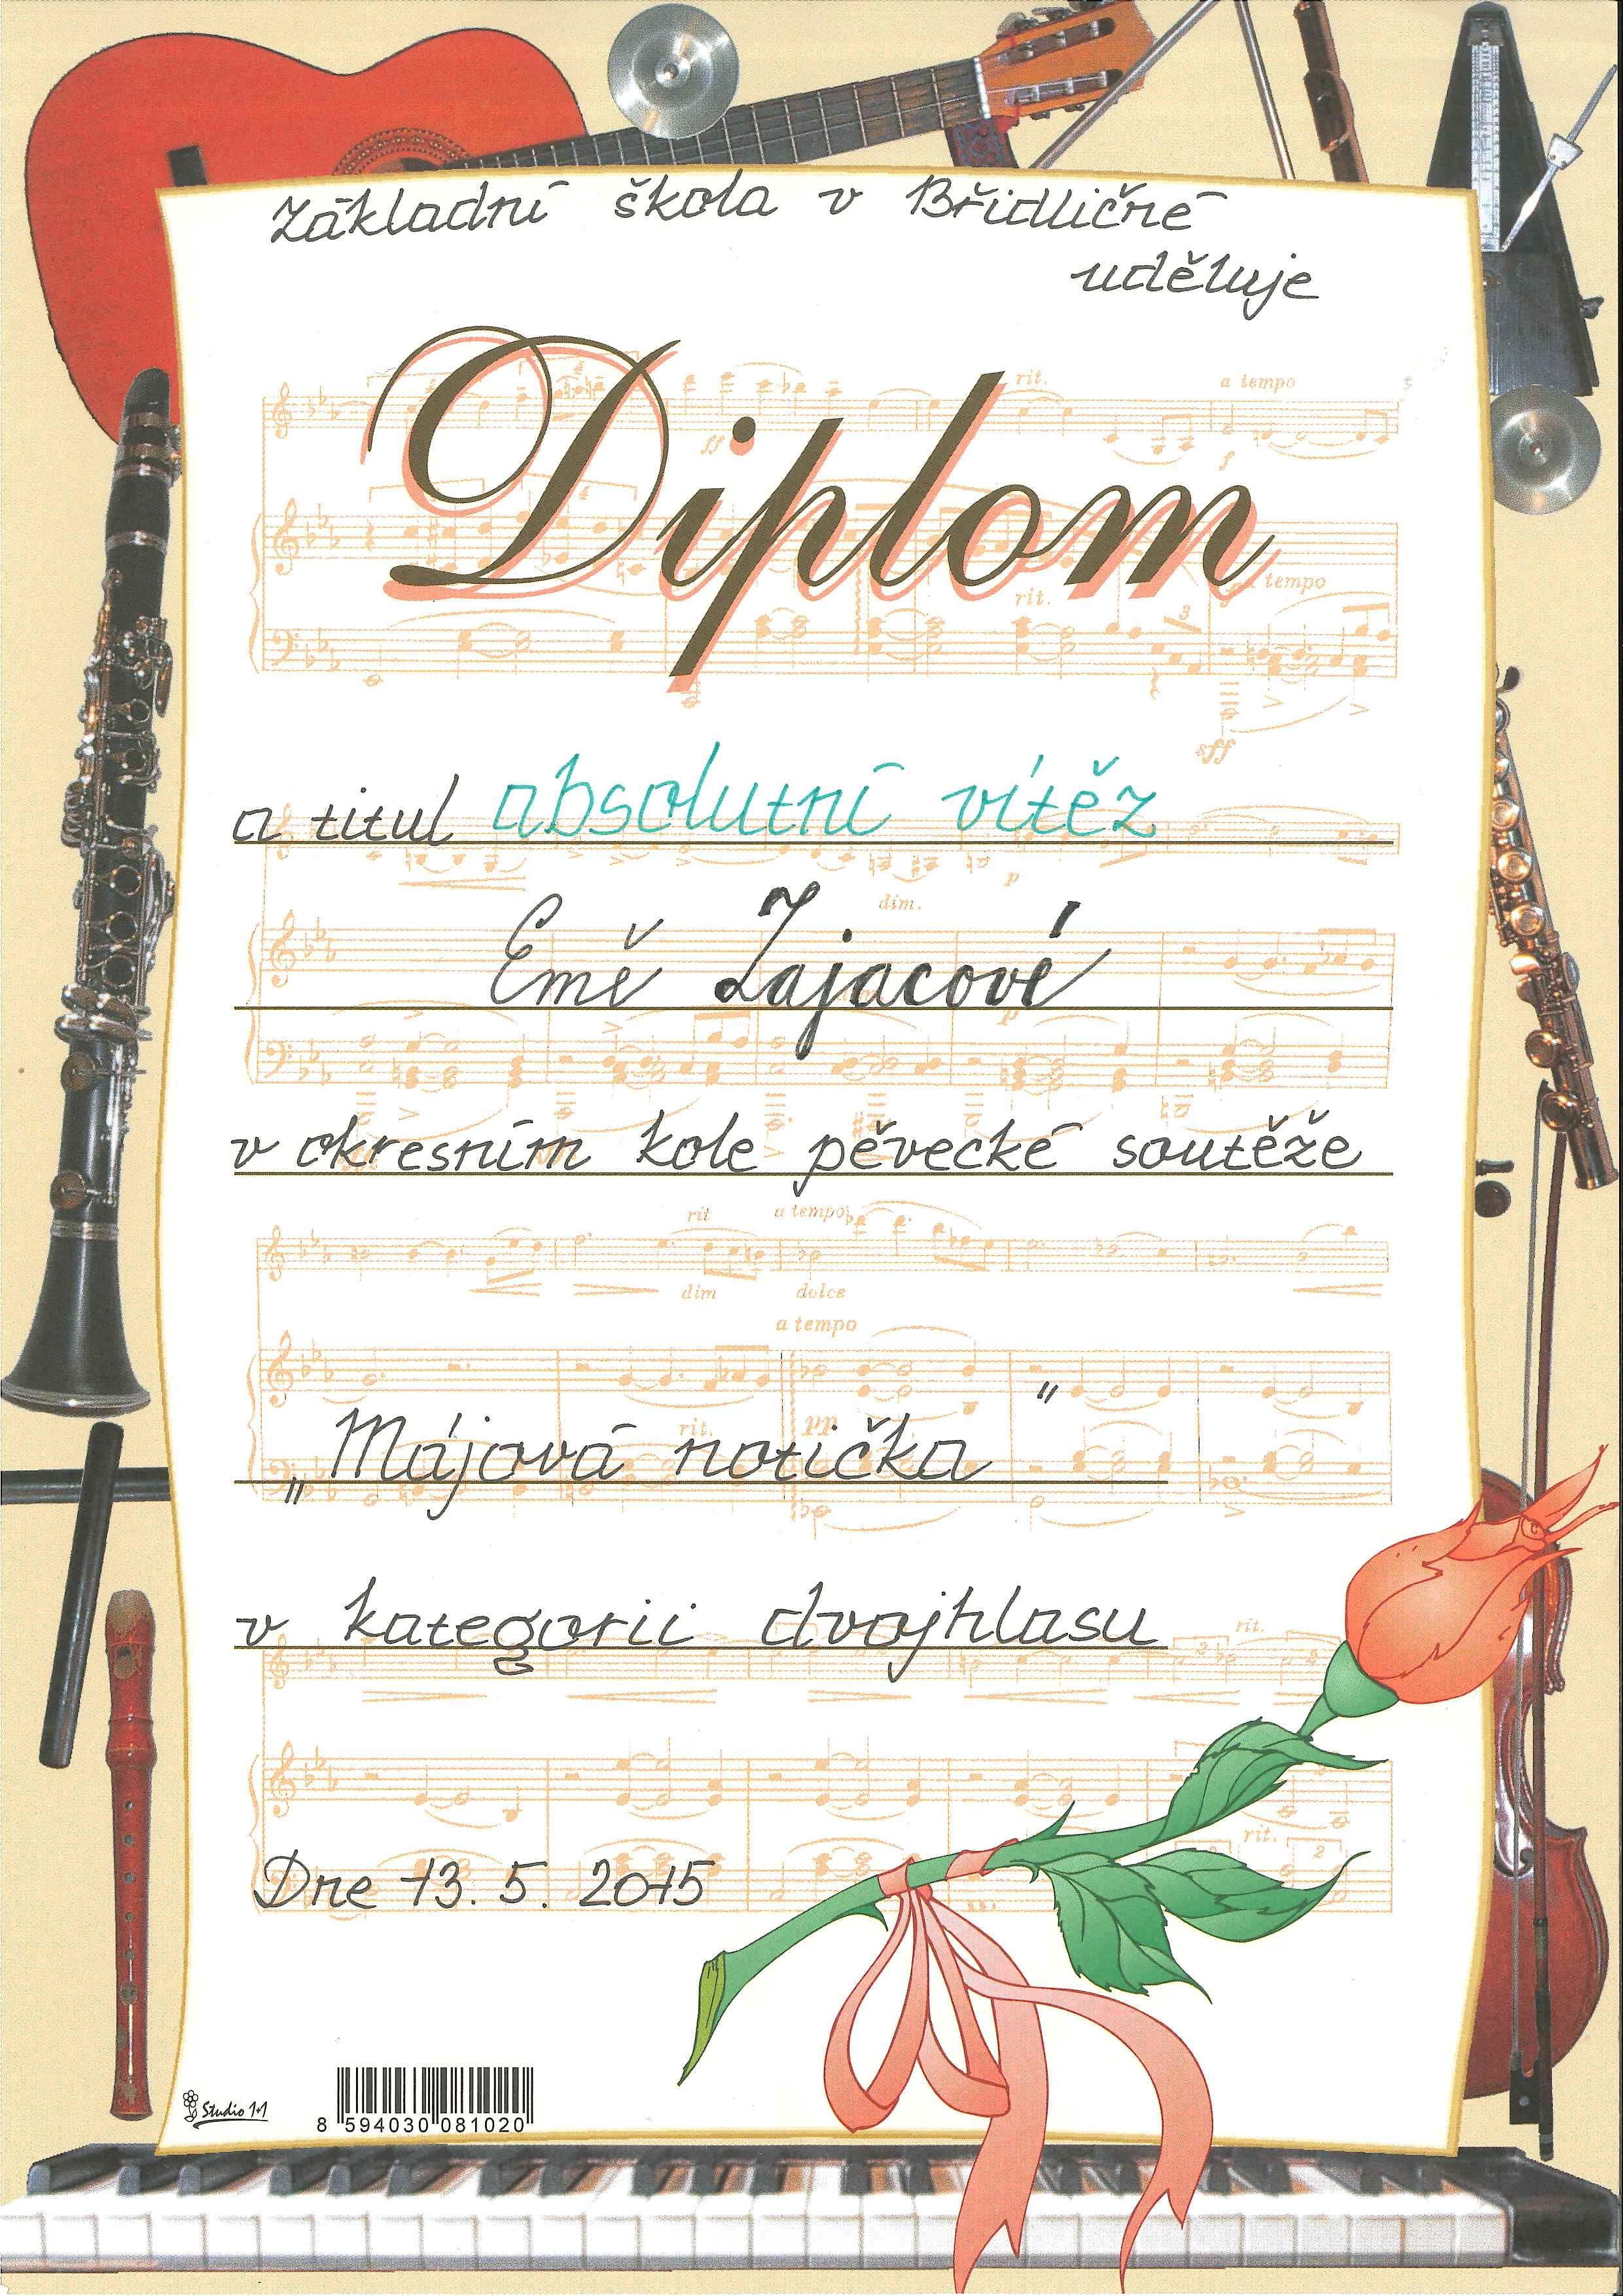 Základní škola v Břidličné
uděluje
Diplom
a titul absolutní vítěz
Emě Zajacové
v okresním kole pěvecké soutěže
„Májová notička"
v kategorii dvojhlasu
Dne 13. 5. 2015
Studio 1+1
8 594030 081020
rit.
a tempo
ff
f
a tempo
rit.
3
sff
p
dim.
p
rit
a tempo
dim
dolce
a tempo
rit.
pp
rit.
rit.
2